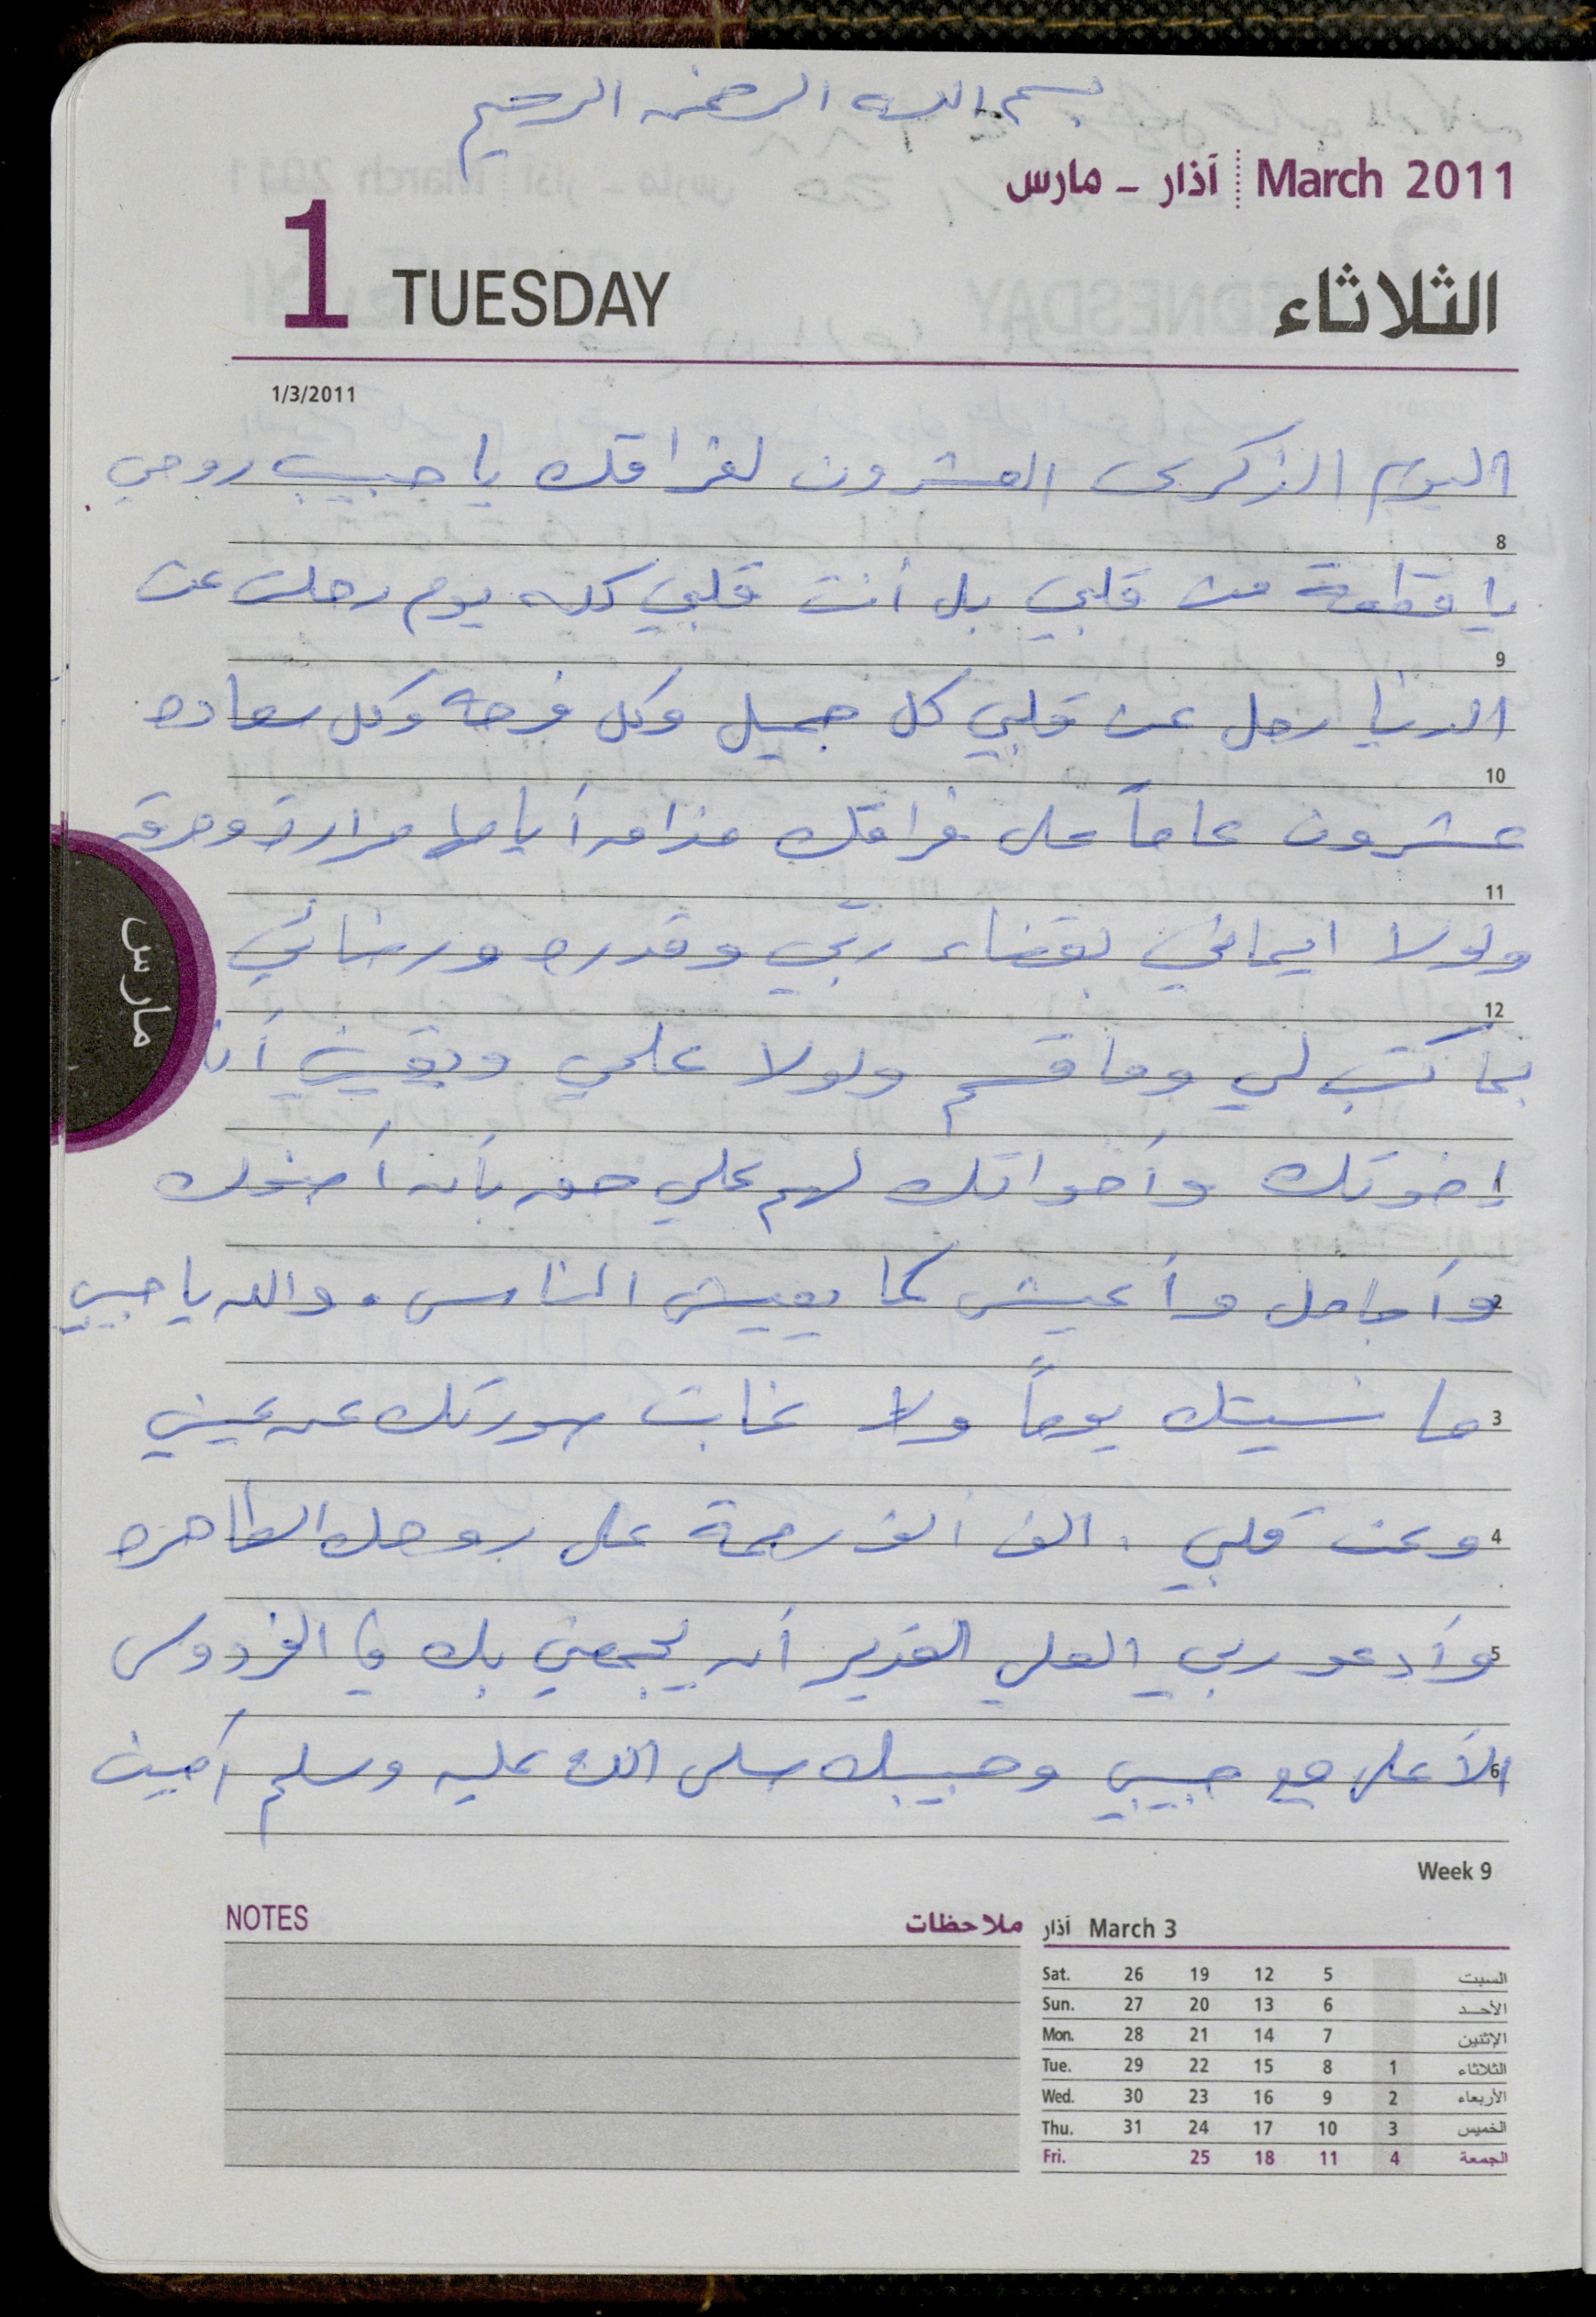 بسم الله الرحمن الرحيم
آذار - مارس March 2011
1 TUESDAY الثلاثاء
1/3/2011
اليوم الذكرى العشرون لفراقك يا حبيب روحي
8
يا قطعة من قلبي بل أنت قلبي كله يوم رحلت عن
9
الدنيا رحل عن قلبي كل جميل وكل فرحه وكل سعاده
10
عشرون عاماً على فراقك مذاق أيامها مرارة وحرقة
11
ولولا ايماني بقضاء ربّي وقدره ورضائي
12
بما كتب لي وما قسم ولولا علمي ويقيني أن
مارس
1 إخوتك وأخواتك لهم علي حق بأن أضحك
2 وأجامل وأعيش كما يعيش الناس. والله يا حبيبي
3 ما نسيتك يوماً ولا غابت صورتك عن عيني
4 وعن قلبي. الف الف رحمة على روحك الطاهره
5 وأدعو ربي العلي القدير أن يجمعني بك في الفردوس
6 الأعلى مع حبيبي وحبيبك صلى الله عليه وسلم أمين
Week 9
NOTES ملاحظات
آذار March 3
Sat. 26 19 12 5 السبت
Sun. 27 20 13 6 الأحد
Mon. 28 21 14 7 الإثنين
Tue. 29 22 15 8 1 الثلاثاء
Wed. 30 23 16 9 2 الأربعاء
Thu. 31 24 17 10 3 الخميس
Fri. 25 18 11 4 الجمعة